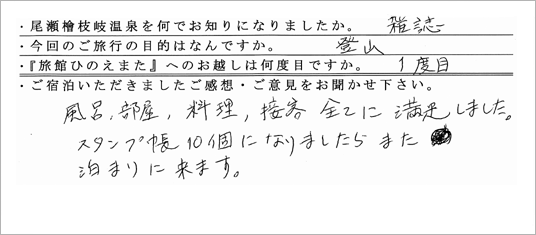 ・尾瀬檜枝岐温泉を何でお知りになりましたか。 雑誌
・今回のご旅行の目的はなんですか。 登山
・『旅館ひのえまた』へのお越しは何度目ですか。 1度目
・ご宿泊いただきましたご感想・ご意見をお聞かせ下さい。
風呂、部屋、料理、接客 全てに満足しました。
スタンプ帳10個になりましたらまた
泊まりに来ます。